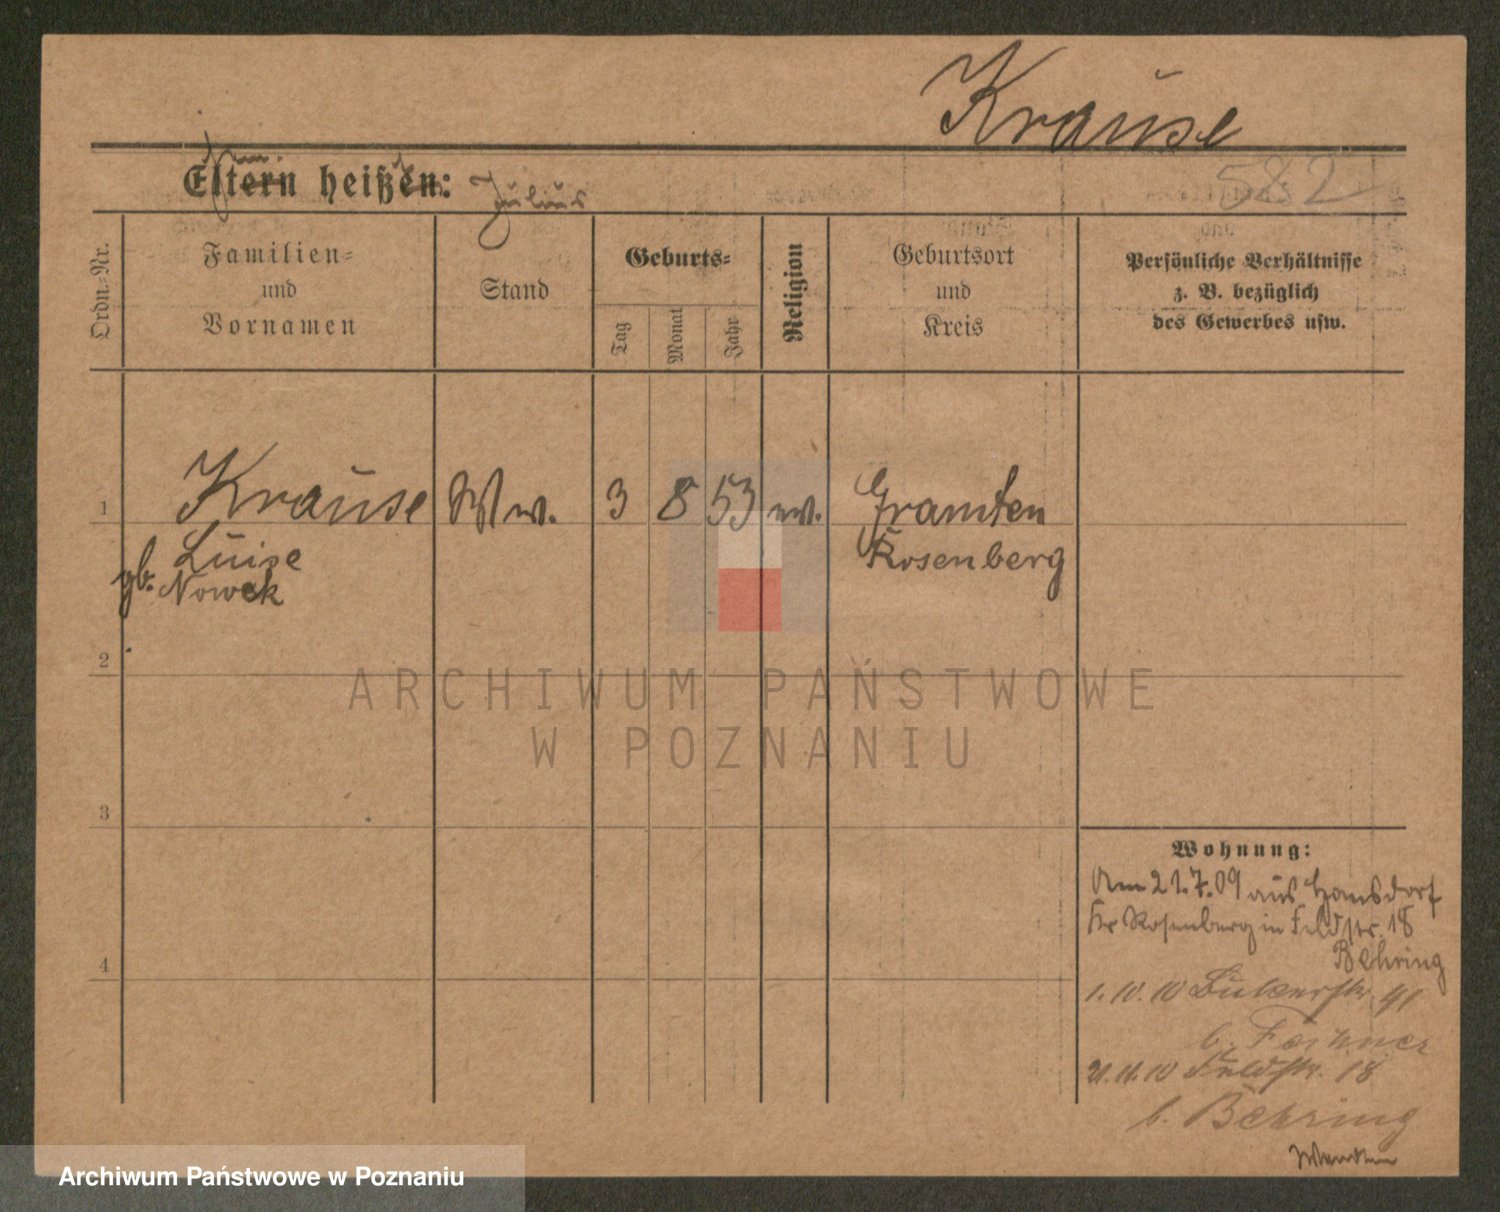 Krause
582
Eltern heißen: Julius
Ordn.-Nr.
Familien-
und
Vornamen
Stand
Geburts-
Tag
Monat
Jahr
Religion
Geburtsort
und
Kreis
Persönliche Verhältnisse
z. B. bezüglich
des Gewerbes usw.
1 Krause Ww. 3 8 53 ev. Gramten
Luise Rosenberg
gb. Nowek
2
ARCHIWUM PAŃSTWOWE
W POZNANIU
3
Wohnung:
Am 21.7.09 aus Hansdorf
Kr Rosenberg in Feldstr. 18
Behring
4
1.10.10 41
b.
21.11.10 Feldstr. 18
b. Behring
Archiwum Państwowe w Poznaniu